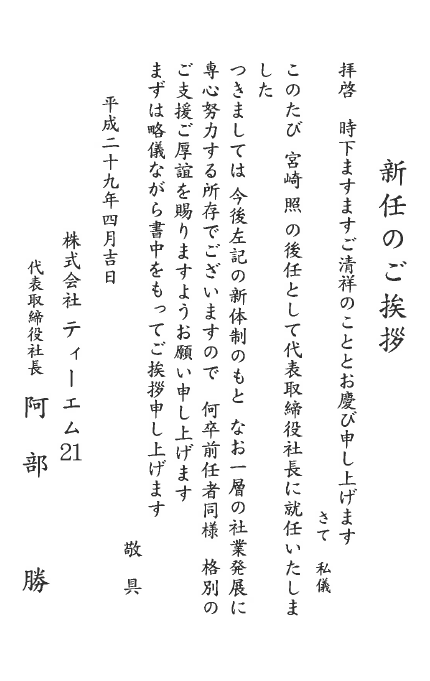 新任のご挨拶
拝啓　時下ますますご清祥のこととお慶び申し上げます
さて　私儀
このたび　宮崎 照 の後任として代表取締役社長に就任いたしま
した
つきましては 今後左記の新体制のもと　なお一層の社業発展に
専心努力する所存でございますので　何卒前任者同様　格別の
ご支援ご厚誼を賜りますようお願い申し上げます
まずは略儀ながら書中をもってご挨拶申し上げます
敬　具
平成二十九年四月吉日
株式会社 ティーエム21
代表取締役社長　阿　部　　勝